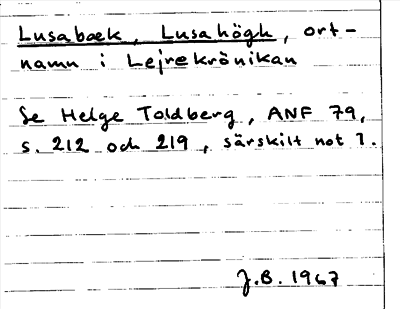 Lusabæk, Lusahögh, ort-
namn i Lejrekrönikan
Se Helge Toldberg, ANF 79,
s. 212 och 219, särskilt not 1.
J.B. 1967